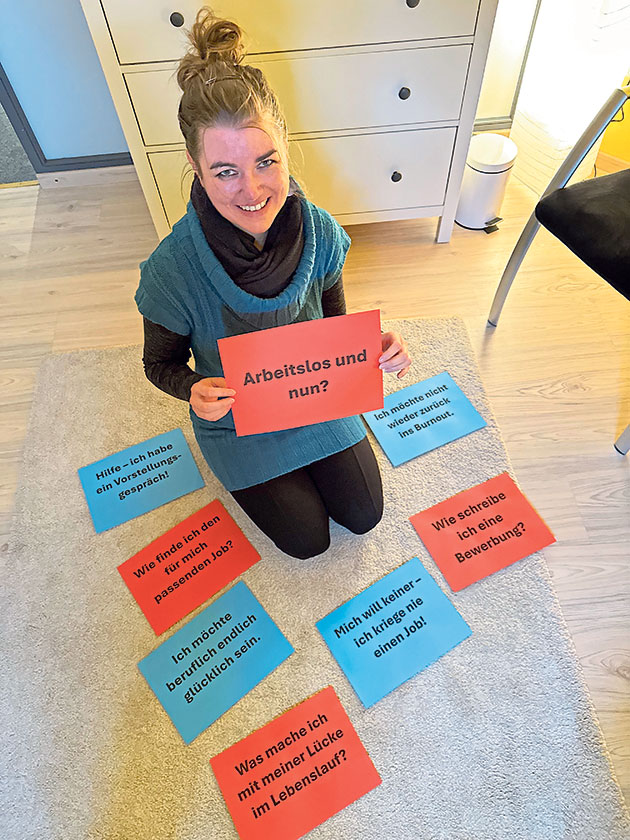 Arbeitslos und
nun?
Ich möchte nicht
wieder zurück
ins Burnout.
Hilfe – ich habe
ein Vorstellungs-
gespräch!
Wie schreibe
ich eine
Bewerbung?
Wie finde ich den
für mich
passenden Job?
Mich will keiner –
ich kriege nie
einen Job!
Ich möchte
beruflich endlich
glücklich sein.
Was mache ich
mit meiner Lücke
im Lebenslauf?